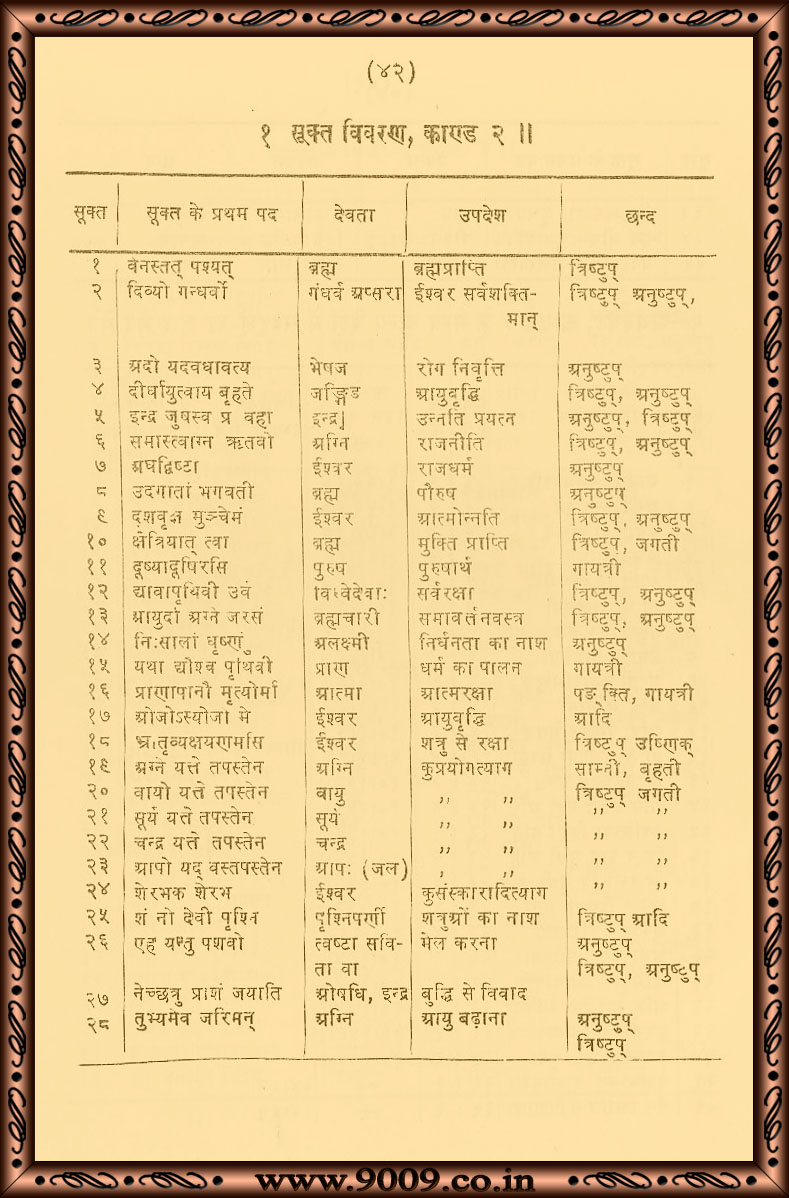 (४२)
१ सूक्त विवरण, काण्ड २ ॥
सूक्त सूक्त के प्रथम पद देवता उपदेश छन्द
१ वेनस्तत् पश्यत् ब्रह्म ब्रह्मप्राप्ति त्रिष्टुप्
२ दिव्यो गन्धर्वो गंधर्व अप्सरा ईश्वर सर्वशक्ति- त्रिष्टुप् अनुष्टुप्,
मान्
३ अदो यदवधावत्य भेषज रोग निवृत्ति अनुष्टुप्
४ दीर्घायुत्वाय बृहते जङ्गिड आयुवृद्धि त्रिष्टुप्, अनुष्टुप्
५ इन्द्र जुषस्व प्र वहा इन्द्र उन्नति प्रयत्न अनुष्टुप्, त्रिष्टुप्
६ समास्त्वाग्न ऋतवो अग्नि राजनीति त्रिष्टुप्, अनुष्टुप्
७ अघद्विष्टा ईश्वर राजधर्म अनुष्टुप्
८ उदगातां भगवती ब्रह्म पौरुष अनुष्टुप्
९ दशवृक्ष मुञ्चेमं ईश्वर आत्मोन्नति त्रिष्टुप्, अनुष्टुप्
१० क्षेत्रियात् त्वा ब्रह्म मुक्ति प्राप्ति त्रिष्टुप्, जगती
११ दूष्यादूषिरसि पुरुष पुरुषार्थ गायत्री
१२ द्यावापृथिवी उर्व विश्वेदेवाः सर्वरक्षा त्रिष्टुप्, अनुष्टुप्
१३ आयुर्दा अग्ने जरसं ब्रह्मचारी समावर्तनवस्त्र त्रिष्टुप्, अनुष्टुप्
१४ निःसालां धृष्णुं अलक्ष्मी निर्धनता का नाश अनुष्टुप्
१५ यथा द्यौश्व पृथिवी प्राण धर्म का पालन गायत्री
१६ प्राणापानौ मृत्योर्मा आत्मा आत्मरक्षा पङ्क्ति, गायत्री
१७ ओजोऽस्योजो मे ईश्वर आयुवृद्धि आदि
१८ भ्रातृव्यक्षयणमसि ईश्वर शत्रु से रक्षा त्रिष्टुप् उष्णिक्
१९ अग्ने यत्ते तपस्तेन अग्नि कुप्रयोगत्याग साम्नी, बृहती
२० वायो यत्ते तपस्तेन वायु ,, ,, त्रिष्टुप् जगती
२१ सूर्य यत्ते तपस्तेन सूर्य ,, ,, ,, ,,
२२ चन्द्र यत्ते तपस्तेन चन्द्र ,, ,, ,, ,,
२३ आपो यद् वस्तपस्तेन आपः (जल) , ,, ,, ,,
२४ शेरभक शेरभ ईश्वर कुसंस्कारादित्याग ,, ,,
२५ शं नो देवी पृश्नि पृश्निपर्णी शत्रुओं का नाश त्रिष्टुप् आदि
२६ एह यन्तु पशवो त्वष्टा सवि- मेल करना अनुष्टुप्
ता वा त्रिष्टुप्, अनुष्टुप्
२७ नेच्छत्रु प्राशं जयाति ओषधि, इन्द्र बुद्धि से विवाद
२८ तुभ्यमेव जरिमन् अग्नि आयु बढ़ाना अनुष्टुप्
त्रिष्टुप्
www.9009.co.in